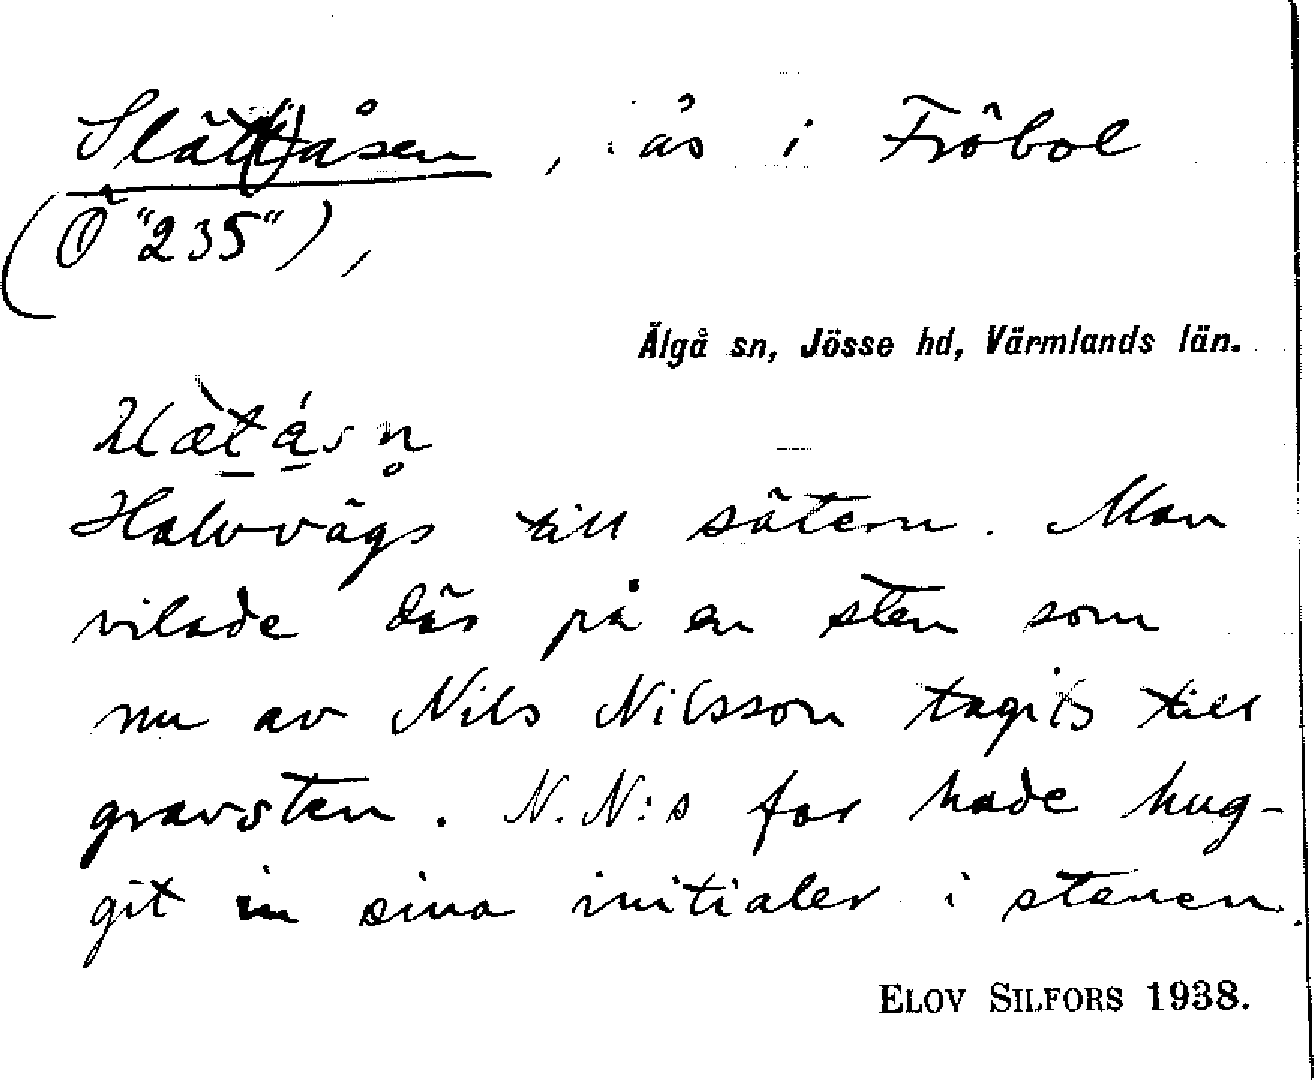 Slät(t)åsen, ås i Fröbol
(Ö "235"),
Älgå sn, Jösse hd, Värmlands län.
Halvvägs till sätern. Man
vilade där på en sten som
nu av Nils Nilsson tagits till
gravsten. N.N:s far hade hug-
git in sina initialer i stenen.
ELOV SILFORS 1938.